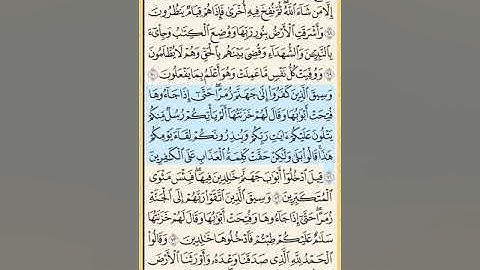 إِلَّا مَن شَاءَ اللَّهُ ثُمَّ نُفِخَ فِيهِ أُخْرَىٰ فَإِذَا هُمْ قِيَامٌ يَنظُرُونَ
۝٦٨ وَأَشْرَقَتِ الْأَرْضُ بِنُورِ رَبِّهَا وَوُضِعَ الْكِتَابُ وَجِايءَ
بِالنَّبِيِّينَ وَالشُّهَدَاءِ وَقُضِيَ بَيْنَهُم بِالْحَقِّ وَهُمْ لَا يُظْلَمُونَ
۝٦٩ وَوُفِّيَتْ كُلُّ نَفْسٍ مَّا عَمِلَتْ وَهُوَ أَعْلَمُ بِمَا يَفْعَلُونَ ۝٧٠
وَسِيقَ الَّذِينَ كَفَرُوا إِلَىٰ جَهَنَّمَ زُمَرًا حَتَّىٰ إِذَا جَاءُوهَا
فُتِحَتْ أَبْوَابُهَا وَقَالَ لَهُمْ خَزَنَتُهَا أَلَمْ يَأْتِكُمْ رُسُلٌ مِّنكُمْ
يَتْلُونَ عَلَيْكُمْ آيَاتِ رَبِّكُمْ وَيُنذِرُونَكُمْ لِقَاءَ يَوْمِكُمْ
هَٰذَا قَالُوا بَلَىٰ وَلَٰكِنْ حَقَّتْ كَلِمَةُ الْعَذَابِ عَلَى الْكَافِرِينَ
۝٧١ قِيلَ ادْخُلُوا أَبْوَابَ جَهَنَّمَ خَالِدِينَ فِيهَا فَبِئْسَ مَثْوَى
الْمُتَكَبِّرِينَ ۝٧٢ وَسِيقَ الَّذِينَ اتَّقَوْا رَبَّهُمْ إِلَى الْجَنَّةِ
زُمَرًا حَتَّىٰ إِذَا جَاءُوهَا وَفُتِحَتْ أَبْوَابُهَا وَقَالَ لَهُمْ خَزَنَتُهَا
سَلَامٌ عَلَيْكُمْ طِبْتُمْ فَادْخُلُوهَا خَالِدِينَ ۝٧٣ وَقَالُوا
الْحَمْدُ لِلَّهِ الَّذِي صَدَقَنَا وَعْدَهُ وَأَوْرَثَنَا الْأَرْضَ